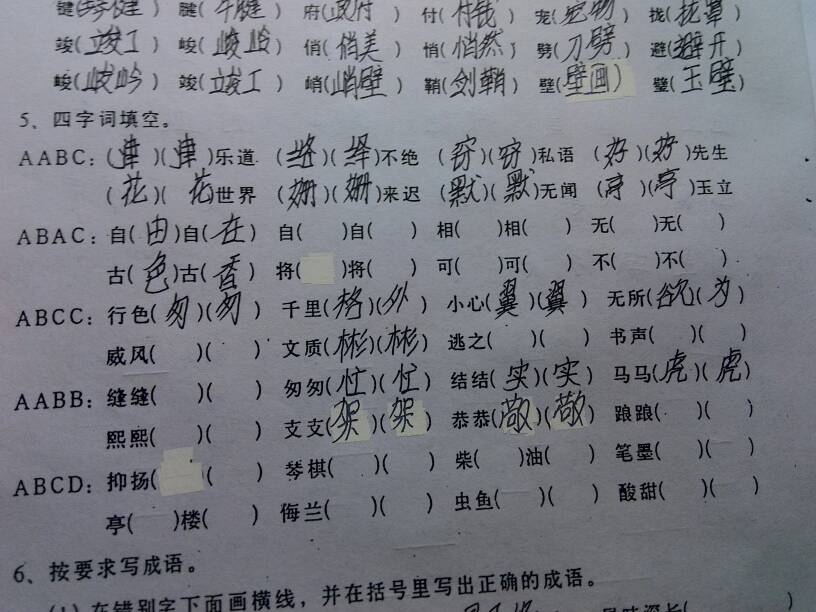 键( 健) 腱( 牛腱) 府(政府) 付(付钱) 宠(宠物) 拢(拢覃)
竣(立竣工) 峻(峻岭) 俏(俏美) 悄(悄然) 劈(刀劈) 避(避开)
峻(峻岭) 竣(立竣工) 峭(峭壁) 鞘(剑鞘) 壁(壁画) 璧(玉璧)
5、四字词填空。
AABC:(津)(津)乐道 (络)(绎)不绝 (窃)(窃)私语 (好)(好)先生
(花)( 花世界 (姗)(姗)来迟 (默)(默)无闻 (亭)(亭)玉立
ABAC:自(由)自(在) 自( )自( ) 相( )相( ) 无( )无( )
古(色)古(香) 将( )将( ) 可( )可( ) 不( )不( )
ABCC:行色(匆)(匆) 千里(格)(外) 小心(翼)(翼) 无所(欲)(为)
威风( )( ) 文质(彬)(彬) 逃之( )( ) 书声( )( )
AABB:缝缝( )( ) 匆匆(忙)(忙) 结结(实)(实) 马马(虎)(虎)
熙熙( )( ) 支支(架)(架) 恭恭(敬)(敬) 踉踉( )( )
ABCD:抑扬( )( ) 琴棋( )( ) 柴( )油( ) 笔墨( )( )
亭( )楼( ) 侮兰( )( ) 虫鱼( )( ) 酸甜( )( )
6、按要求写成语。
(1)在错别字下面画横线,并在括号里写出正确的成语。